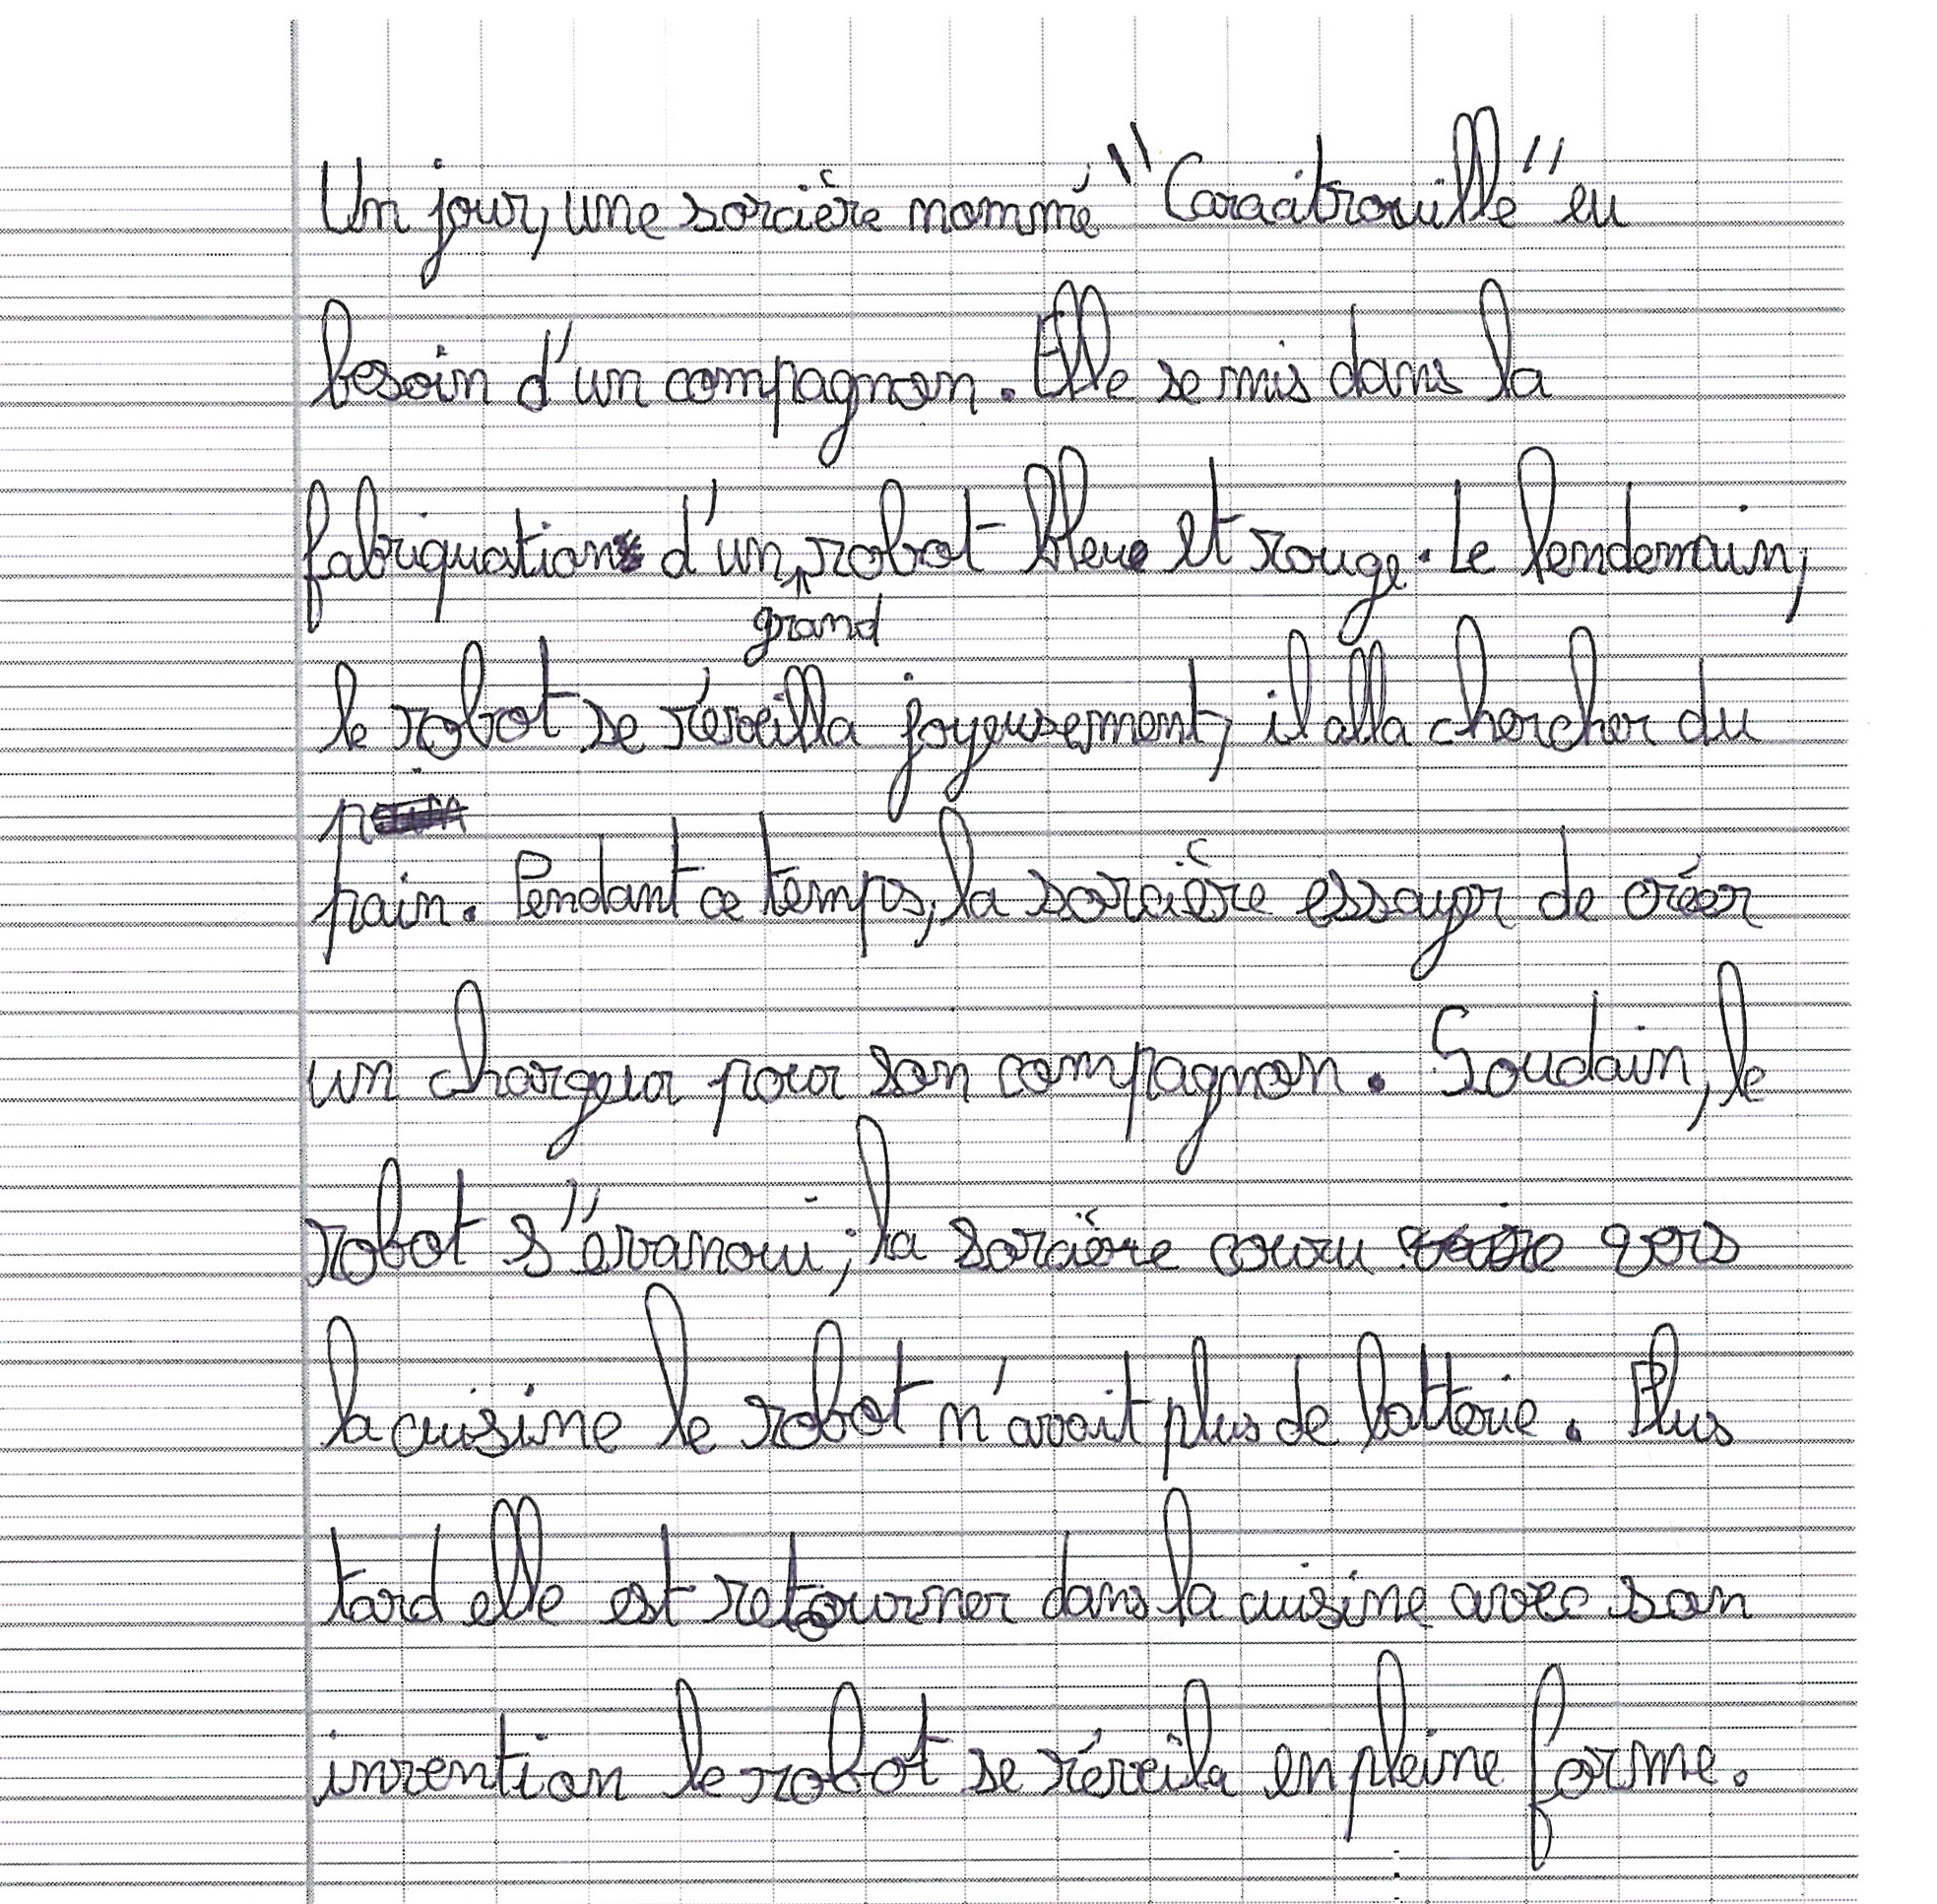 Un jour, une sorcière nommé "Caracitrouille" eu
besoin d'un compagnon. Elle se mis dans la
fabriquation d'un robot bleu et rouge. Le lendemain,
grand
le robot se réveilla joyeusement, il alla chercher du
pain. Pendant ce temps, la sorcière essayer de créer
un chargeur pour son compagnon. Soudain, le
robot s'évanoui, la sorcière couru vers
la cuisine le robot n'avait plus de batterie. Plus
tard elle est retourner dans la cuisine avec son
invention le robot se réveila en pleine forme.